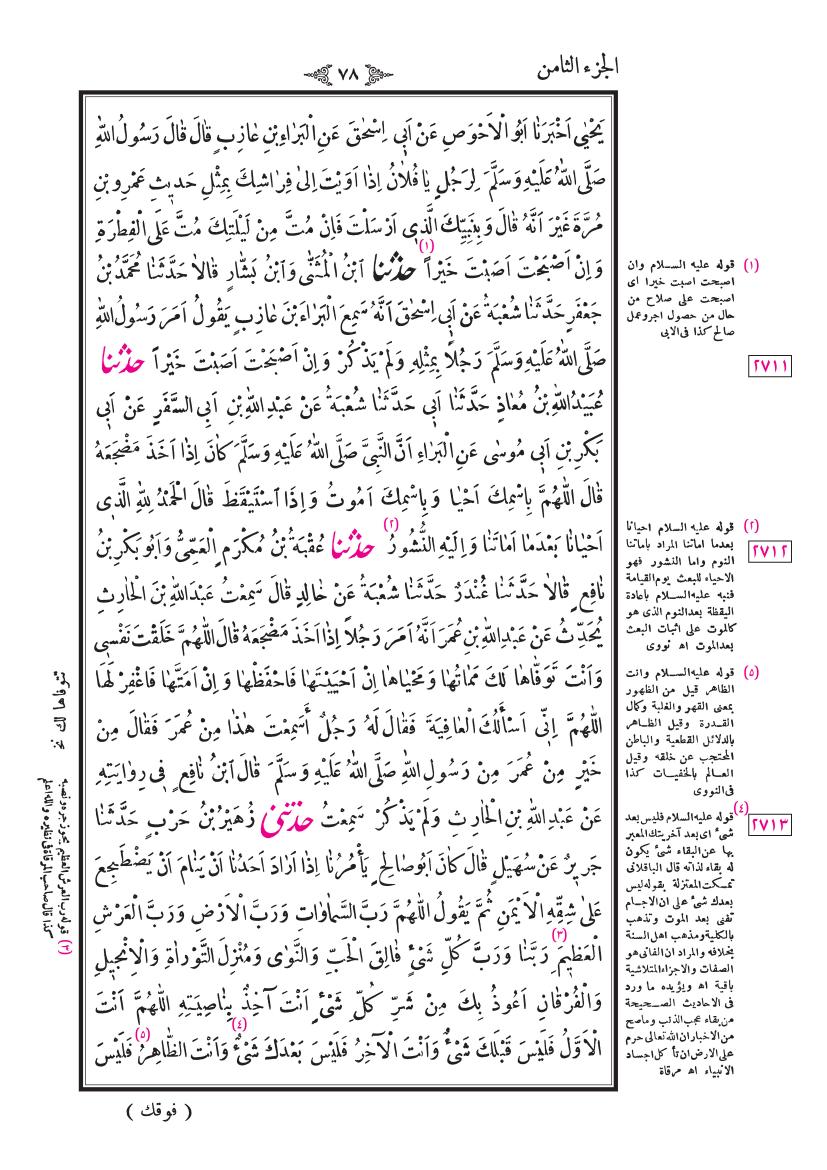 الجزء الثامن
٧٨
يَحْيٰى اَخْبَرَنَا اَبُو الْاَحْوَصِ عَنْ اَبِى اِسْحٰقَ عَنِ الْبَرَاءِ بْنِ عَازِبٍ قَالَ قَالَ رَسُولُ اللّٰهِ
صَلَّى اللّٰهُ عَلَيْهِ وَسَلَّمَ لِرَجُلٍ يَا فُلَانُ اِذَا اَوَيْتَ اِلٰى فِرَاشِكَ بِمِثْلِ حَدِيثِ عَمْرِو بْنِ
مُرَّةَ غَيْرَ اَنَّهُ قَالَ وَبِنَبِيِّكَ الَّذِى اَرْسَلْتَ فَاِنْ مُتَّ مِنْ لَيْلَتِكَ مُتَّ عَلَى الْفِطْرَةِ
وَاِنْ اَصْبَحْتَ اَصَبْتَ خَيْراً (١) حدثنا ابْنُ الْمُثَنّٰى وَابْنُ بَشَّارٍ قَالَا حَدَّثَنَا مُحَمَّدُ بْنُ
جَعْفَرٍ حَدَّثَنَا شُعْبَةُ عَنْ اَبِى اِسْحٰقَ اَنَّهُ سَمِعَ الْبَرَاءَ بْنَ عَازِبٍ يَقُولُ اَمَرَ رَسُولُ اللّٰهِ
صَلَّى اللّٰهُ عَلَيْهِ وَسَلَّمَ رَجُلاً بِمِثْلِهِ وَلَمْ يَذْكُرْ وَاِنْ اَصْبَحْتَ اَصَبْتَ خَيْراً حدثنا
عُبَيْدُ اللّٰهِ بْنُ مُعَاذٍ حَدَّثَنَا اَبِى حَدَّثَنَا شُعْبَةُ عَنْ عَبْدِ اللّٰهِ بْنِ اَبِى السَّفَرِ عَنْ اَبِى
بَكْرِ بْنِ اَبِى مُوسٰى عَنِ الْبَرَاءِ اَنَّ النَّبِىَّ صَلَّى اللّٰهُ عَلَيْهِ وَسَلَّمَ كَانَ اِذَا اَخَذَ مَضْجَعَهُ
قَالَ اللّٰهُمَّ بِاسْمِكَ اَحْيَا وَبِاسْمِكَ اَمُوتُ وَاِذَا اسْتَيْقَظَ قَالَ الْحَمْدُ لِلّٰهِ الَّذِى
اَحْيَانَا بَعْدَمَا اَمَاتَنَا وَاِلَيْهِ النُّشُورُ (٢) حدثنا عُقْبَةُ بْنُ مُكْرَمٍ الْعَمِّىُّ وَاَبُو بَكْرِ بْنُ
نَافِعٍ قَالَا حَدَّثَنَا غُنْدَرٌ حَدَّثَنَا شُعْبَةُ عَنْ خَالِدٍ قَالَ سَمِعْتُ عَبْدَ اللّٰهِ بْنَ الْحَارِثِ
يُحَدِّثُ عَنْ عَبْدِ اللّٰهِ بْنِ عُمَرَ اَنَّهُ اَمَرَ رَجُلاً اِذَا اَخَذَ مَضْجَعَهُ قَالَ اللّٰهُمَّ خَلَقْتَ نَفْسِى
وَاَنْتَ تَوَفَّاهَا لَكَ مَمَاتُهَا وَمَحْيَاهَا اِنْ اَحْيَيْتَهَا فَاحْفَظْهَا وَاِنْ اَمَتَّهَا فَاغْفِرْ لَهَا
اللّٰهُمَّ اِنِّى اَسْأَلُكَ الْعَافِيَةَ فَقَالَ لَهُ رَجُلٌ أَسَمِعْتَ هٰذَا مِنْ عُمَرَ فَقَالَ مِنْ
خَيْرٍ مِنْ عُمَرَ مِنْ رَسُولِ اللّٰهِ صَلَّى اللّٰهُ عَلَيْهِ وَسَلَّمَ قَالَ ابْنُ نَافِعٍ فِى رِوَايَتِهِ
عَنْ عَبْدِ اللّٰهِ بْنِ الْحَارِثِ وَلَمْ يَذْكُرْ سَمِعْتُ حدثني زُهَيْرُ بْنُ حَرْبٍ حَدَّثَنَا
جَرِيرٌ عَنْ سُهَيْلٍ قَالَ كَانَ اَبُو صَالِحٍ يَأْمُرُنَا اِذَا اَرَادَ اَحَدُنَا اَنْ يَنَامَ اَنْ يَضْطَجِعَ
عَلٰى شِقِّهِ الْاَيْمَنِ ثُمَّ يَقُولُ اللّٰهُمَّ رَبَّ السَّمَاوَاتِ وَرَبَّ الْاَرْضِ وَرَبَّ الْعَرْشِ
الْعَظِيمِ (٣) رَبَّنَا وَرَبَّ كُلِّ شَىْءٍ فَالِقَ الْحَبِّ وَالنَّوٰى وَمُنْزِلَ التَّوْرَاةِ وَالْاِنْجِيلِ
وَالْفُرْقَانِ اَعُوذُ بِكَ مِنْ شَرِّ كُلِّ شَىْءٍ اَنْتَ آخِذٌ بِنَاصِيَتِهِ اللّٰهُمَّ اَنْتَ
الْاَوَّلُ فَلَيْسَ قَبْلَكَ شَىْءٌ وَاَنْتَ الْآخِرُ فَلَيْسَ بَعْدَكَ شَىْءٌ (٤) وَاَنْتَ الظَّاهِرُ (٥) فَلَيْسَ
( فوقك )
(١) قوله عليه السلام وان
اصبحت اصبت خيرا اى
اصبحت على صلاح من
حال من حصول اجر وعمل
صالح كذا فى الابى
٢٧١١
(٢) قوله عليه السلام احيانا
بعدما اماتنا المراد باماتنا
النوم واما النشور فهو
الاحياء للبعث يوم القيامة
فنبه عليه السلام باعادة
اليقظة بعد النوم الذى هو
كالموت على اثبات البعث
بعد الموت اه نووى
٢٧١٢
(٥) قوله عليه السلام وانت
الظاهر قيل من الظهور
بمعنى القهر والغلبة وكمال
القدرة وقيل الظاهر
بالدلائل القطعية والباطن
المحتجب عن خلقه وقيل
العالم بالخفيات كذا
فى النووى
(٤) قوله عليه السلام فليس بعدك
شئ اى بعد آخريتك المعبر
بها عن البقاء شئ يكون
له بقاء لذاته قال الباقلانى
تمسكت المعتزلة بقوله ليس
بعدك شئ على ان الاجسام
تفنى بعد الموت وتذهب
بالكلية ومذهب اهل السنة
بخلافه والمراد ان الفانى هو
الصفات والاجزاء المتلاشية
باقية اه ويؤيده ما ورد
فى الاحاديث الصحيحة
من بقاء عجب الذنب وما صح
من الاخبار ان الله تعالى حرم
على الارض ان تأكل اجساد
الانبياء اه مرقاة
٢٧١٣
تتوفاها لك نخ
(٣) قوله رب العرش العظيم يجوز جره ونصبه
كذا قال صاحب المرقاة فى نظائره والله اعلم